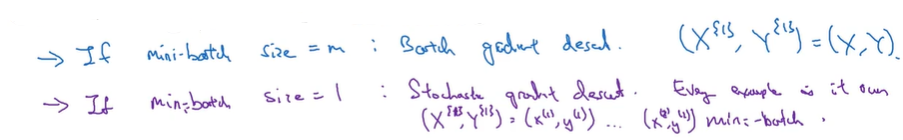 → If mini-batch size = m : Batch gradient descent. (X^{1}, Y^{1}) = (X, Y).
→ If mini-batch size = 1 : Stochastic gradient descent. Every example is it own
(X^{1}, Y^{1}) = (x^(1), y^(1)) ... (x^(2), y^(2)) mini-batch.